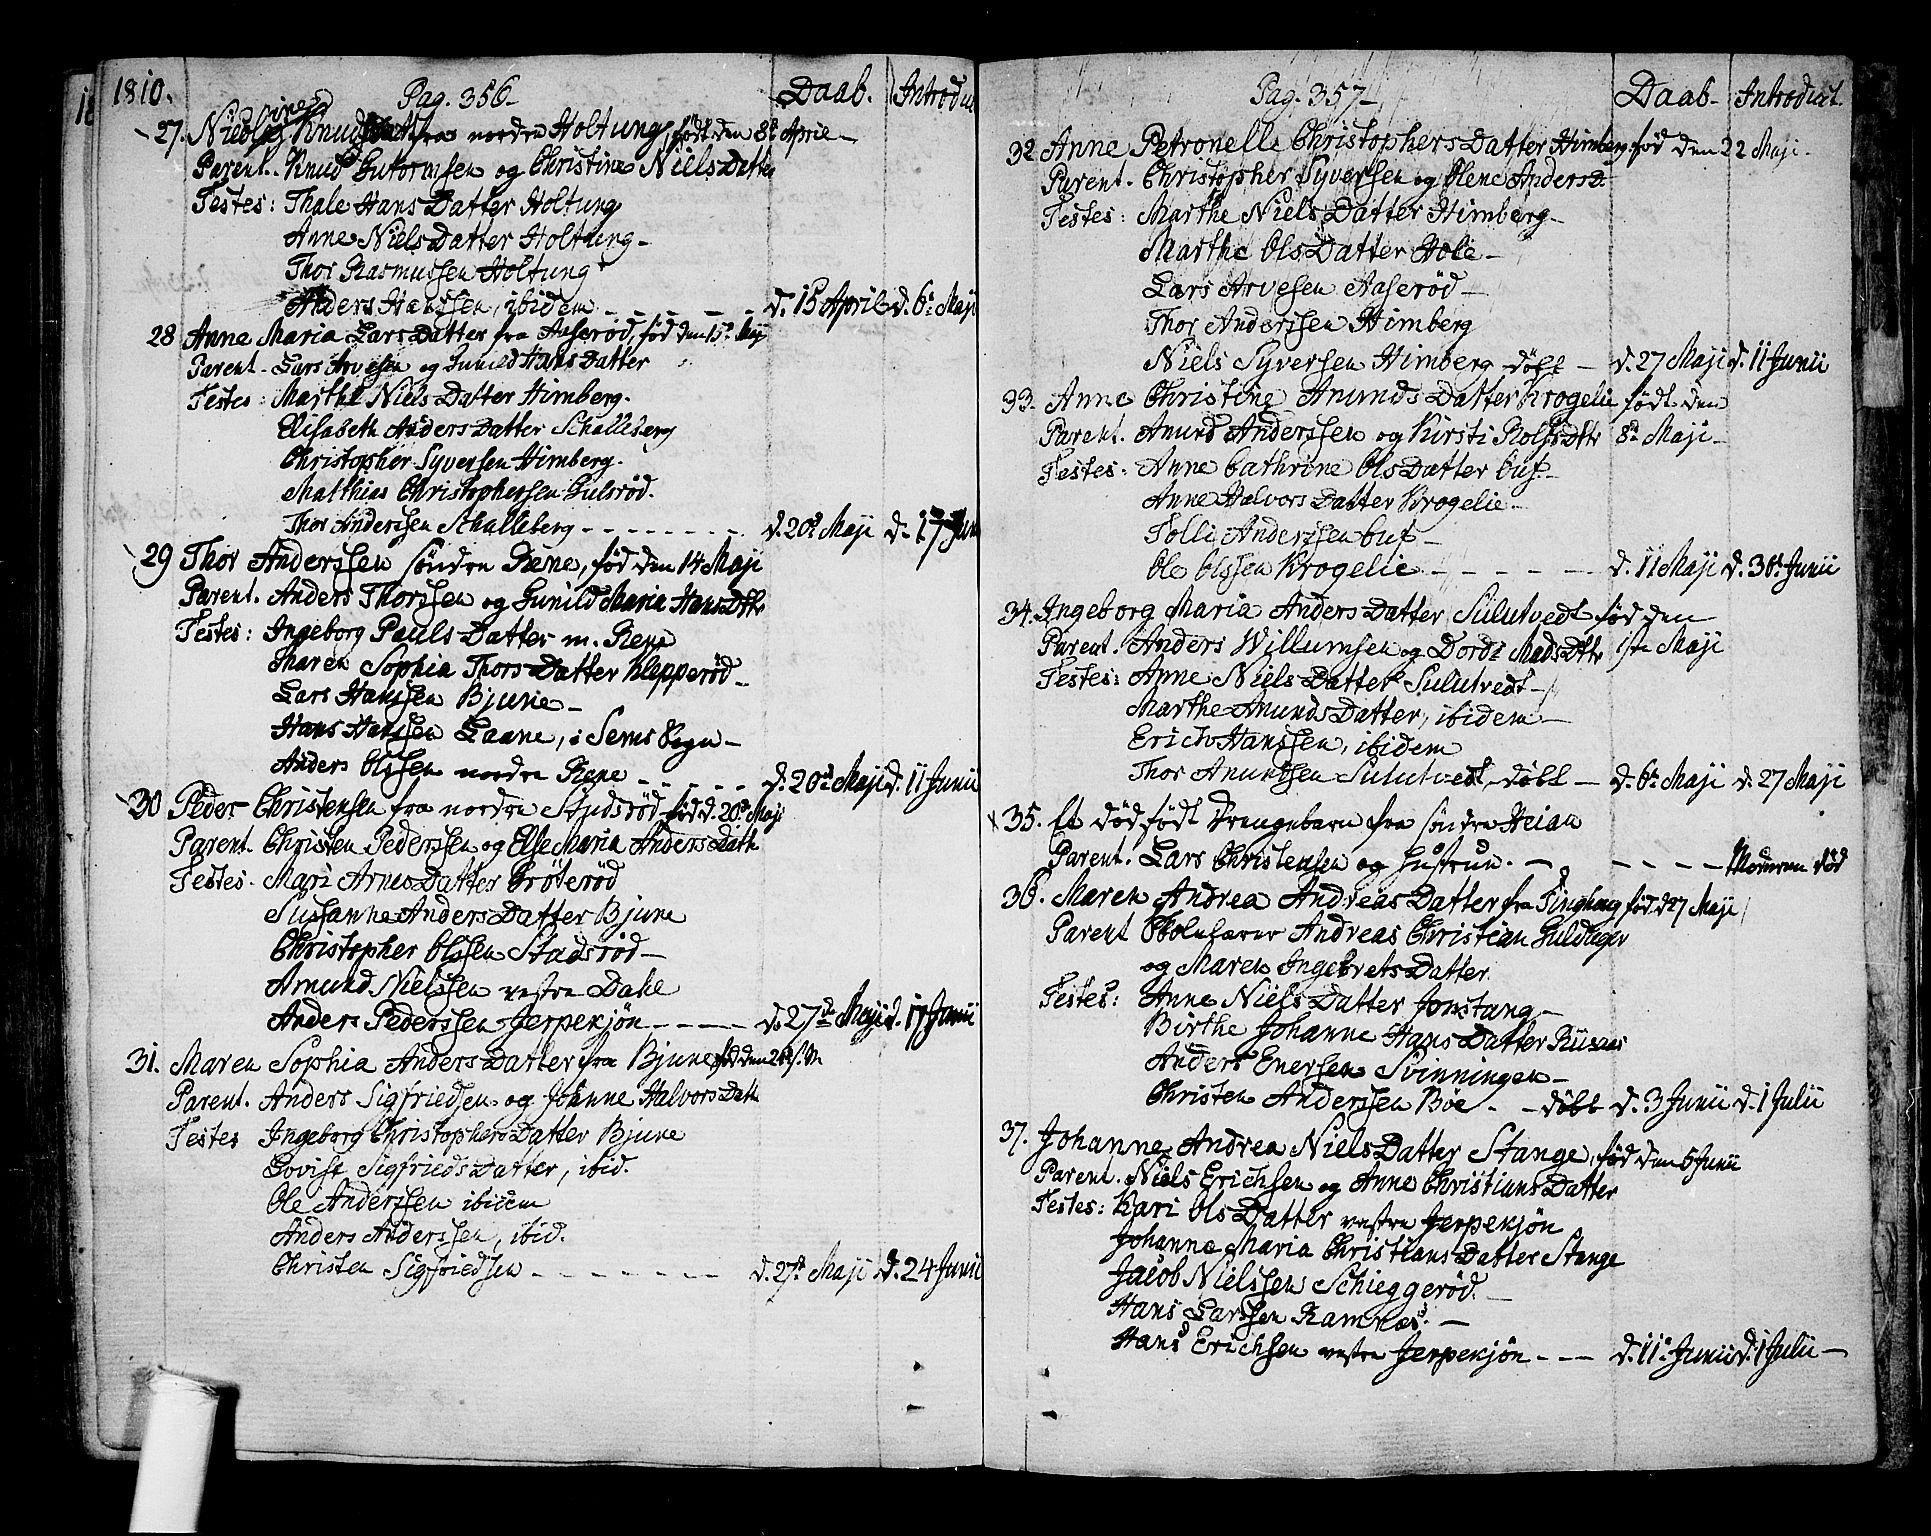 1810.
Pag. 356. Daab. Introduct
27. Knuds fra nordre Holtung, født den 8de April
Parent. Knud Gutormsen og Christine Niels Datter
Testes: Thale Hans Datter Holtung
Anne Niels Datter Holtung
Thor Rasmussen Holtung
Anders Hanssen, ibidem - - - d. 15 April d. 6te Maji
28 Anne Maria Lars Datter fra Aaserød, fød den 15de Maji
Parent. Lars Arvesen og Gunild Hans Datter
Testes: Marthe Niels Datter Himberg.
Elisabeth Anders Datter Schalleberg
Christopher Syversen Himberg.
Matthias Christophersen Gulsrød.
Thor Anderssen Schalleberg - - - d. 20de Maji d. 17 Juni
29 Thor Anderssen søndre Rene, fød den 14 Maji
Parent. Anders Thorssen og Gunild Maria Hans Dttr
Testes: Ingeborg Pauls Datter m. Rene
Maren Sophia Thors Datter Klepperød
Lars Hanssen Bjune
Hans Hanssen Laane, i Sems Sogn
Anders Olssen nordre Rene - - - d. 20de Maji d. 11 Junii
30 Peder Christensen fra nordre Studsrød fød d. 20de Maji
Parent. Christen Pederssen og Else Maria Anders Datt.
Testes. Mari Arnes Datter Grøterød
Susanne Anders Datter Bjune
Christopher Olssen Stadsrød
Amund Nielssen vestre Dahl
Anders Pederssen Jerpekjøn - - - d. 27de Maji d. 17 Junii
31. Maren Sophia Anders Datter fra Bjune fød den
Parent. Anders Sigfriedsen og Johanne Halvors Datt
Testes Ingeborg Christophers Datter Bjune
Lovise Sigfrieds Datter, ibid.
Ole Anderssen ibidem
Anders Anderssen, ibid.
Christen Sigfriedsen - - - d. 27de Maji d. 24 Junii
Pag. 357 Daab. Introduct.
32 Anne Petronelle Christophers Datter Himberg fød den 22 Maji
Parent. Christopher Syversen og Olene Anders D.
Testes: Marthe Niels Datter Himberg
Marthe Ols Datter Hole
Lars Arvesen Aaserød
Thor Anderssen Himberg
Niels Syversen Himberg døbt d. 27 Maji d. 11 Junii
33. Anne Christine Amunds Datter Krogelie født den
Parent. Amund Anderssen og Kirsti Rolfs Dttr 8de Maji
Testes: Anne Cathrine Ols Datter
Anne Halvors Datter Krogelie
Tolli Anderssen
Ole Olssen Krogelie - - - d. 11 Maji d. 30te Junii
34. Ingeborg Maria Anders Datter Sulutvedt fød den
Parent. Anders Willumsen og Dorde Mads Dttr 1ste Maji
Testes: Anne Niels Datter Sulutvedt
Marthe Amunds Datter, ibidem
Erich Hanssen, ibidem
Thor Amundsen Sulutvedt døbt - d. 6te Maji d. 27 Maji
35. Et død født Drengebarn fra søndre Heian
Parent. Lars Christensen og Hustrue. - - - Moderen død
36. Maren Andrea Andreas Datter fra Tinghoug fød d. 27 Maji
Parent Skolelærer Andreas Christian Guldager
og Maren Ingebrets Datter
Testes: Anne Niels Datter Fonstang
Birthe Johanne Hans Datter Rusnes
Anders Enersen Svinningen
Christen Anderssen Bøe - døbt d. 3 Junii d. 1 Julii
37. Johanne Andrea Niels Datter Stange, fød den 5 Junii
Parent. Niels Erichsen og Anne Christians Datter
Testes: Kari Ols Datter vestre Jerpekjøn
Johanne Maria Christians Datter Stange
Jacob Nielssen Schieggerød
Hans Larssen Ramnæs
Hans Erichsen vestre Jerpekjøn - - - d. 11te Junii d. 1 Julii